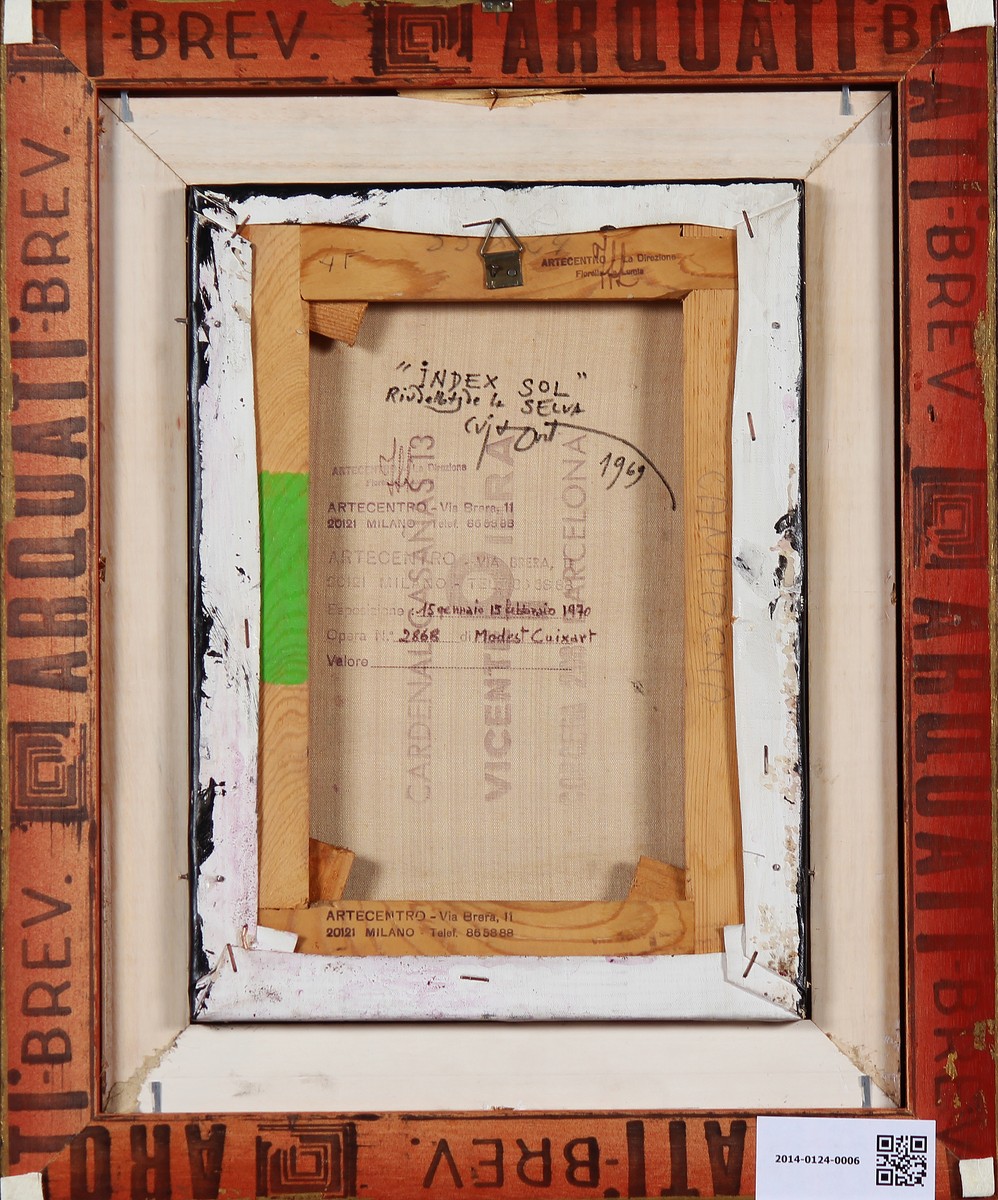 ARQUATI-BREV.
ARQUATI-B
ARTECENTRO - La Direzione
"INDEX SOL"
Riudellots de la SELVA
Cuixart
1969
ARTECENTRO - La Direzione
ARTECENTRO - Via Brera, 11
20121 MILANO - Telef. 865888
ARTECENTRO - VIA BRERA,
20121 MILANO -
Esposizione: 15 gennaio 15 febbraio 1970
Opera N.° 2868 di Modest Cuixart
Valore
CARDENAL CASAÑAS 13
VICENTE PIERA
BARCELONA
ARTECENTRO - Via Brera, 11
20121 MILANO - Telef. 865888
BREV.
ARQUATI-BREV.
ARQUATI-BREV.
ATI-BREV.
ARQUATI-BREV.
ATI-BREV.
ARQ
2014-0124-0006